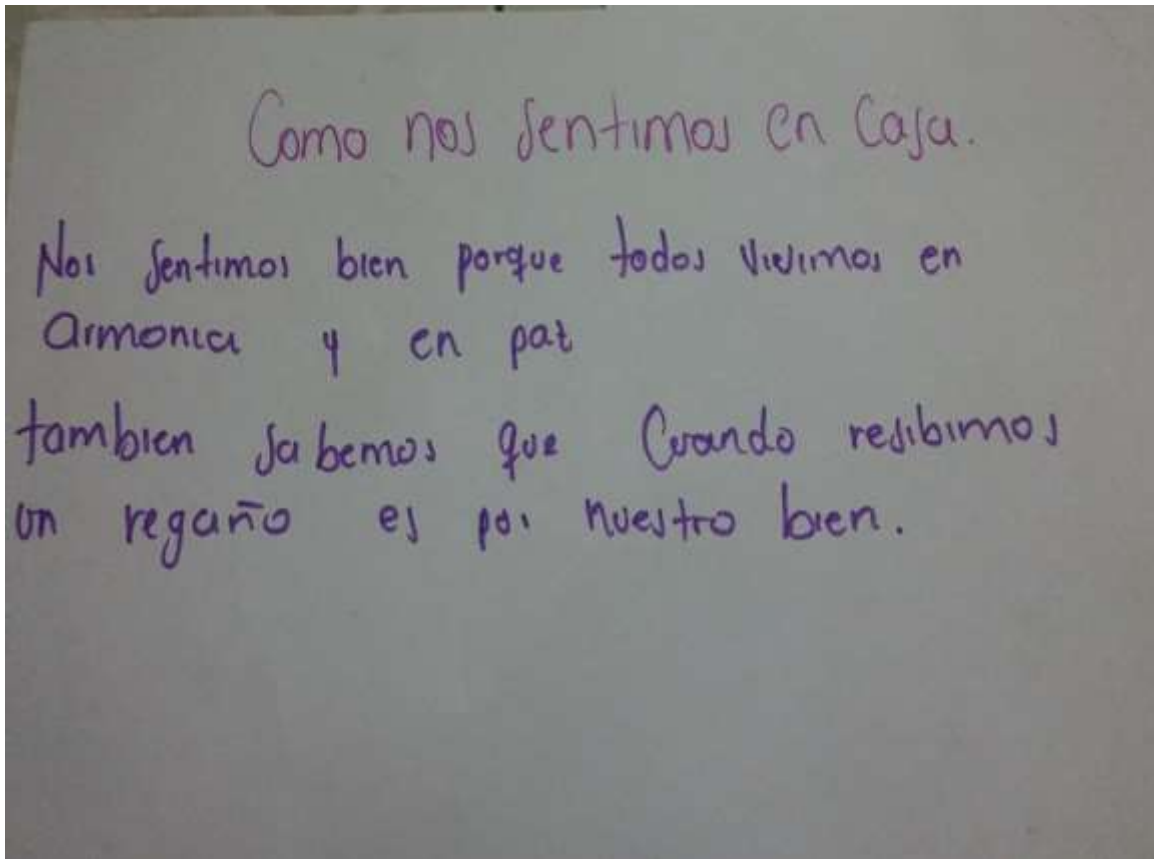 Como nos sentimos en Casa.
Nos sentimos bien porque todos vivimos en
armonia y en paz
tambien sabemos que Cuando resibimos
un regaño es por nuestro bien.